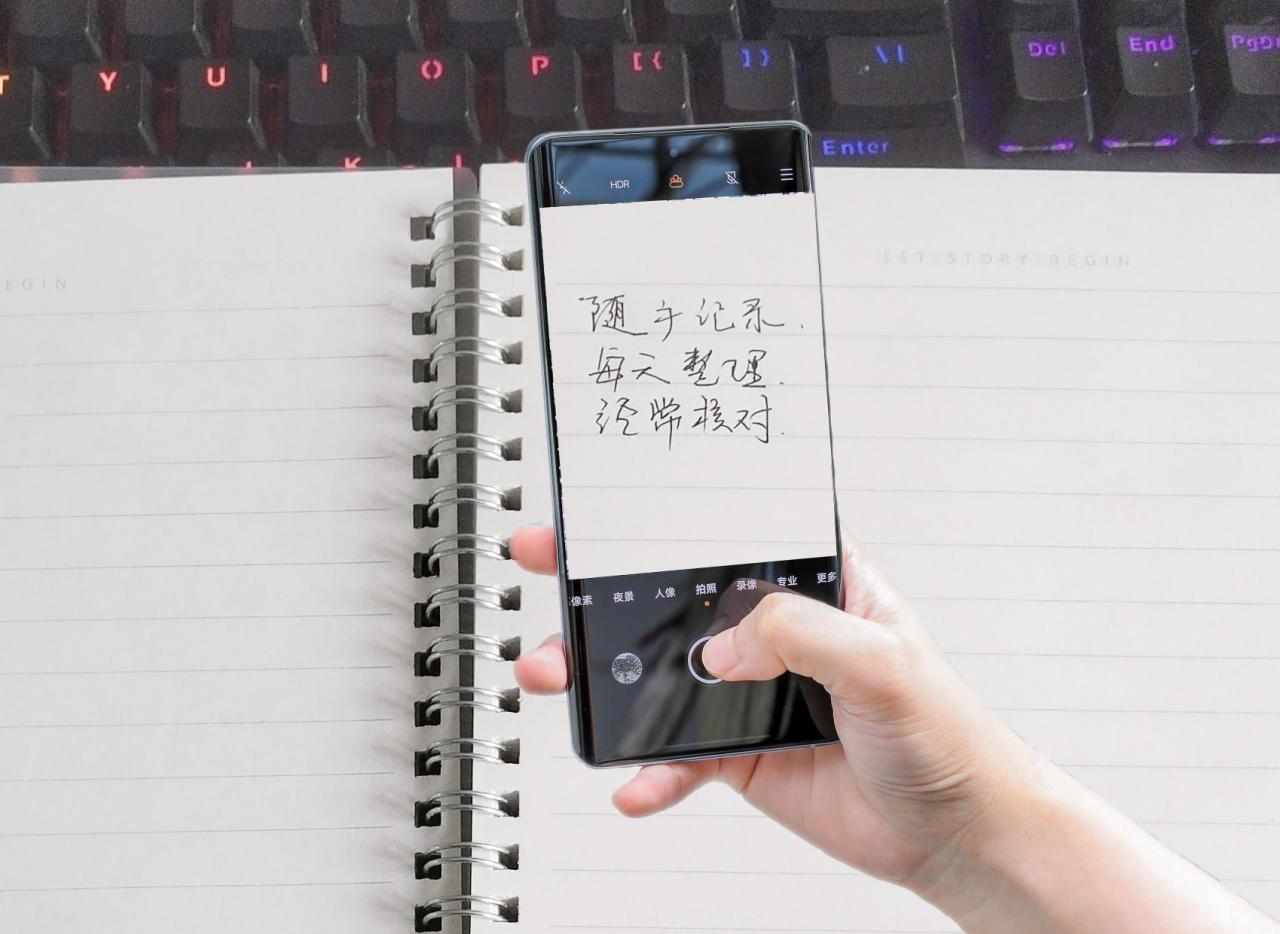 T Y U I O P [ { ] } \ | Del End PgD
K L Enter
EGIN
LET STORY BEGIN
HDR
随手记录.
每天整理.
经常核对.
像素 夜景 人像 拍照 录像 专业 更多